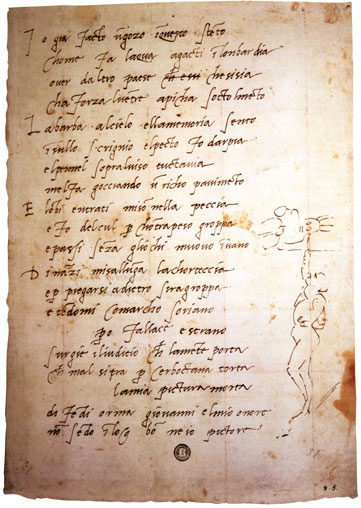 I o gia facto ũ gozo ĩ questo stẽto
chome fa laqua agacti ĩ lombardia
over daltro paese ch essi chesisia
cha forza luẽtre apicha socto lmẽto
L a barba alcielo ellamemoria sento
ĩ sullo scrignio elpecto fo darpia
elpennel sopraluiso tuctavia
melfa gocciando ũ richo pavimẽto
E lobi entrati miso nella peccia
e fo delcul p chotrapeso groppa
e passi seza gliochi muovo ĩvano
D inãzi misallũga lachorteccia
e p piegarsi adietro siragroppa
e tẽdomi comarcho soriano
po fallace e strano
surgie iliuditio ch lamẽte porta
ch mal sitra p cerboctana torta
lamia pictura morta
difẽdi orma giovanni elmio onore
nõ sẽdo ĩ loco bõ ne io pictore